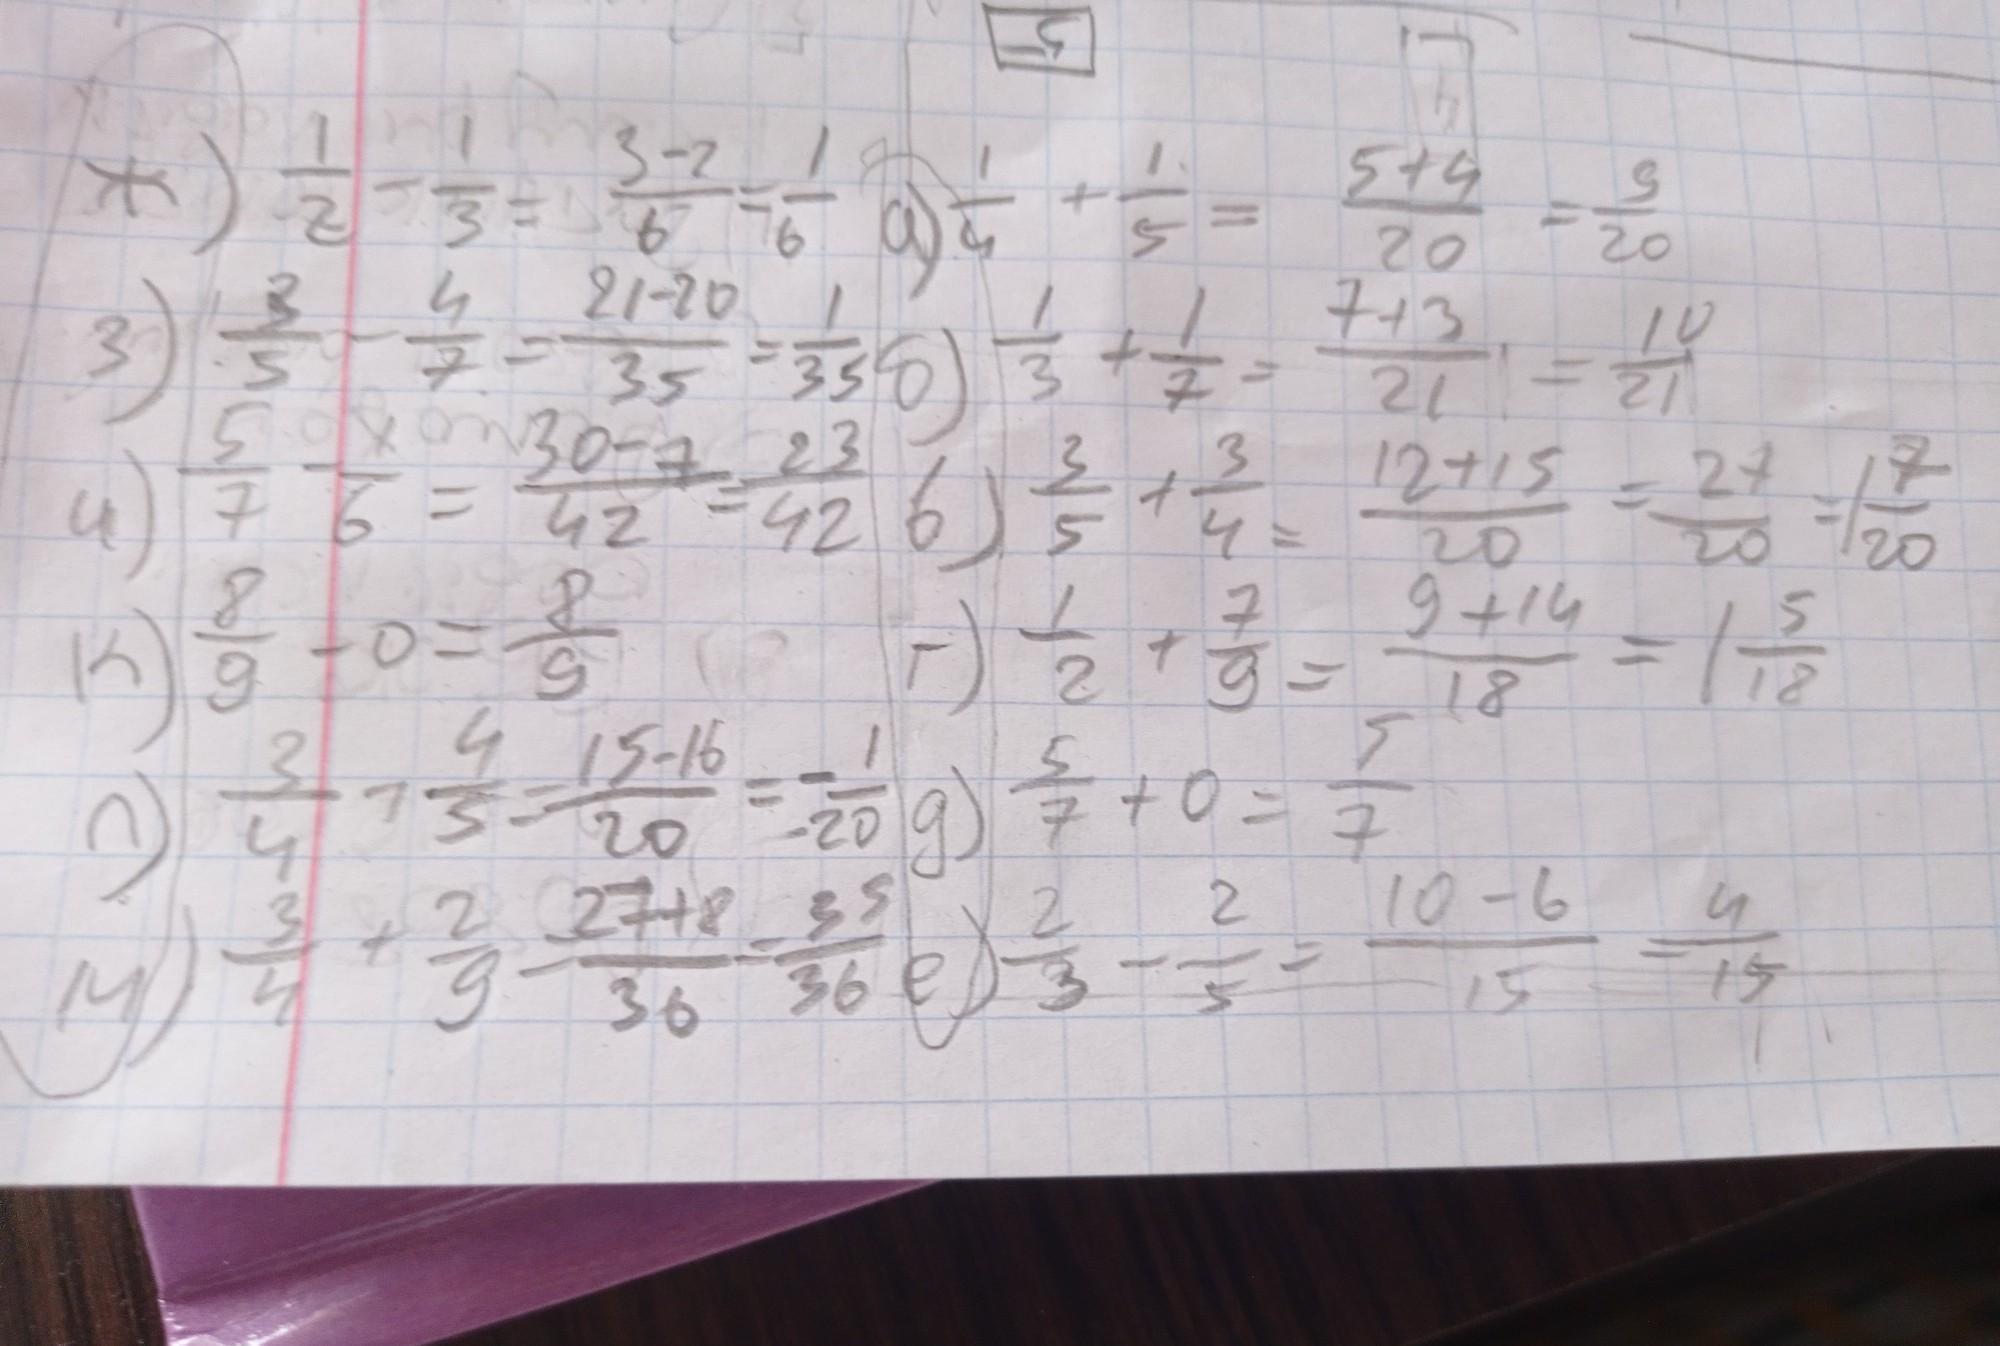 5
ж) 1/2 - 1/3 = 3-2/6 = 1/6
з) 3/5 - 4/7 = 21-20/35 = 1/35
и) 5/7 - /6 = 30-7/42 = 23/42
к) 8/9 - 0 = 8/9
л) 3/4 - 4/5 = 15-16/20 = -1/-20
м) 3/4 + 2/9 = 27+8/36 = 35/36
а) 1/4 + 1/5 = 5+4/20 = 9/20
б) 1/3 + 1/7 = 7+3/21 = 10/21
в) 3/5 + 3/4 = 12+15/20 = 27/20 = 1 7/20
г) 1/2 + 7/9 = 9+14/18 = 1 5/18
д) 5/7 + 0 = 5/7
е) 2/3 - 2/5 = 10-6/15 = 4/15